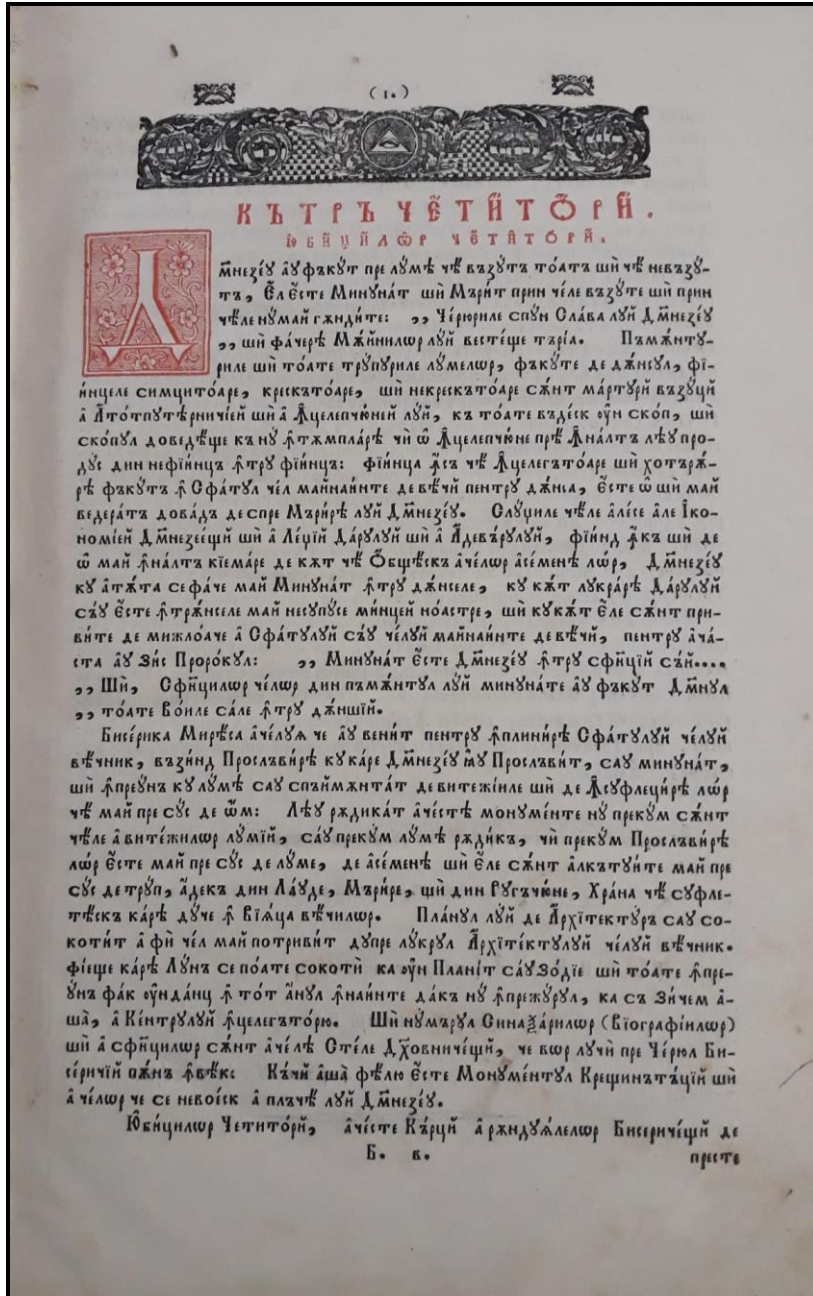 (1.)
КЪТРЪ ЧЕ҆ТИ́ТѠ́РЙ.
Ю҆БИ́ЦИЛѠ́Р ЧЕ҆ТИТО́РЙ.
Д
м҃незе́ꙋ а҆ꙋ фъкꙋ́т пре лꙋ́мѣ че҆ възꙋ́тъ тоа́тъ шѝ че҆ невъзꙋ́-
тъ, Е҆л є҆́сте Минꙋна́т шѝ Мъри́т прин че́ле възꙋ́те шѝ прин
че҆́ле нꙋмай гѫнди́те: ,, Че́рюриле спꙋ́н Сла́ва лꙋ́й Дм҃незе́ꙋ
,, шѝ фа́черѣ Мѫ́йнилѡр лꙋ́й весте́ще търі́а. Пъмѫ́нтꙋ-
риле шѝ тоа́те трꙋ́пꙋриле лꙋ́мелѡр, фъкꙋ́те де дѫ́нсꙋл, фї-
и́нцеле симцитоа́ре, крескътоа́ре, шѝ некрескътоа́ре сѫ́нт ма́ртꙋрй възꙋ́цй
а҆ А҆тотпꙋте́рничїей шѝ а҆ Ꙟ҆целепчю́ней лꙋ́й, къ тоа́те въде́ск оу҆́н ско́п, шѝ
ско́пꙋл доведѣ́ще къ нꙋ́ ꙟ҆тѫмпла́рѣ чѝ ѡ҆ Ꙟ҆целепчю́не прѣ́ Ꙟ҆на́лтъ лѣ́ꙋ про-
дꙋ́с дин нефїи́нцъ ꙟ҆трꙋ фїи́нцъ: фїи́нца ꙟ҆́съ че҆ Ꙟ҆целегътоа́ре шѝ хотърѫ́-
рѣ фъкꙋ́тъ ꙟ҆ Сфа́тꙋл че́л майнаи́нте де вѣ́чй пентрꙋ дѫ́нса, є҆́сте ѡ҆ шѝ май
ведера́тъ дова́дъ деспре Мъри́рѣ лꙋ́й Дм҃незе́ꙋ. Слꙋ́циле че҆́ле але́се а҆ле Іко-
номі́ей Дм҃незее́щй шѝ а҆ Ле́џїй Да́рꙋлꙋй шѝ а҆ А҆деві́рꙋлꙋй, фїи́нд ꙟ҆къ шѝ де
ѡ҆ май ꙟ҆на́лтъ кїема́ре де кѫ́т че҆ Ѻ҆бще́скъ а҆че́лѡр а҆се́менѣ лѡ́р, Дм҃незе́ꙋ
кꙋ атѫ́та се фа́че май Минꙋна́т ꙟ҆трꙋ дѫ́нселе, кꙋ кѫ́т лꙋкра́рѣ Да́рꙋлꙋй
съ́ꙋ є҆́сте ꙟ҆трѫ́нселе май несꙋпꙋ́се ми́нцей ноа́стре, шѝ кꙋкѫ́т є҆́ле сѫ́нт при-
ви́те де мижлоа́че а҆ Сфа́тꙋлꙋй съ́ꙋ че́лꙋй майнаи́нте де вѣ́чй, пентрꙋ а҆ча́-
ста а҆ꙋ Зи́с Проро́кꙋл: ,, Минꙋна́т є҆́сте Дм҃незе́ꙋ ꙟ҆трꙋ сфи́нцїй съ́й....
,, Шѝ, Сфи́нцилѡр че́лѡр дин пъмѫ́нтꙋл лꙋ́й минꙋна́те а҆ꙋ фъкꙋ́т Дм҃нꙋл
,, тоа́те Во́иле са́ле ꙟ҆трꙋ дѫ́ншїй.
Бисе́рика Мире́са а҆че́лꙋѧ че а҆ꙋ вени́т пентрꙋ ꙟ҆плини́рѣ Сфа́тꙋлꙋй че́лꙋй
вѣ́чник, възи́нд Прослъви́рѣ кꙋка́ре Дм҃незе́ꙋ ꙗ҆ꙋ Прослъви́т, саꙋ минꙋна́т,
шѝ ꙟ҆преꙋ́нъ кꙋ лꙋ́мѣ саꙋ спъймѫнта́т де витежі́иле шѝ де Ꙟ҆сꙋфлеци́рѣ лѡ́р
че҆ май пре сꙋ́с де ѡ҆́м: Лѣ́ꙋ рѫдика́т а҆че́стѣ монꙋме́нте нꙋ преку́м сѫ́нт
че҆́ле а҆ вите́жилѡр лꙋ́мїй, са́ꙋ преку́м лꙋ́мѣ рѫди́къ, чѝ преку́м Прослъви́рѣ
лѡ́р є҆́сте май пре сꙋ́с де лꙋ́ме, де а҆се́менѣ шѝ є҆́ле сѫ́нт а҆лкътꙋи́те май пре
сꙋ́с де трꙋ́п, а҆́декъ дин Ла́ꙋде, Мъри́ре, шѝ дин Рꙋгъчю́не, Хра́на че҆ сꙋфле-
те́скъ ка́рѣ дꙋ́че ꙟ҆ Вїѧ́ца вѣ́чилѡр. Пла́нꙋл лꙋ́й де А҆рхїтектꙋ́ръ саꙋ со-
коти́т а҆ фѝ че́л май потриви́т дꙋпре лꙋ́крꙋл А҆рхїте́ктꙋлꙋй че́лꙋй вѣ́чник.
фїеще ка́рѣ Лꙋ́нъ се поа́те сокотѝ ка оу҆́н Плани́т саꙋ Зо́дїе шѝ тоа́те ꙟ҆пре-
ꙋ́нъ фа́к оу҆́нда́нц ꙟ҆ то́т а҆́нꙋл ꙟ҆наи́нте да́къ нꙋ́ ꙟ҆прежꙋ́рꙋл, ка съ Зи́чем а҆-
ша̀, а҆ Ке́нтрꙋлꙋй ꙟ҆целегъто́рю. Шѝ нꙋмъ́рꙋл Синаѯа́рилѡр (Вїографі́илѡр)
шѝ а҆ сфи́нцилѡр сѫ́нт а҆че́лѣ Сте́ле Дх҃овниче́щй, че вѡр лꙋчѝ пре Че́рюл Би-
се́ричїй пѫ́нъ ꙟ҆вѣ́к: Къ́чй а҆ша̀ фѣ́лю є҆́сте Монꙋме́нтꙋл Крещинътъ́цїй шѝ
а҆ че́лѡр че се невое́ск а҆ плъчѣ̀ лꙋ́й Дм҃незе́ꙋ.
Ю҆би́цилѡр Четито́рй, а҆че́сте Къ́рцй а҆ рѫндꙋѧ́лелѡр Бисериче́щй де
Б. в.
песте